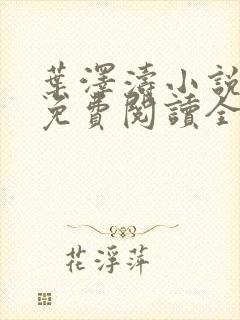 葉澤濤小說
免費閱讀全
花浮萍